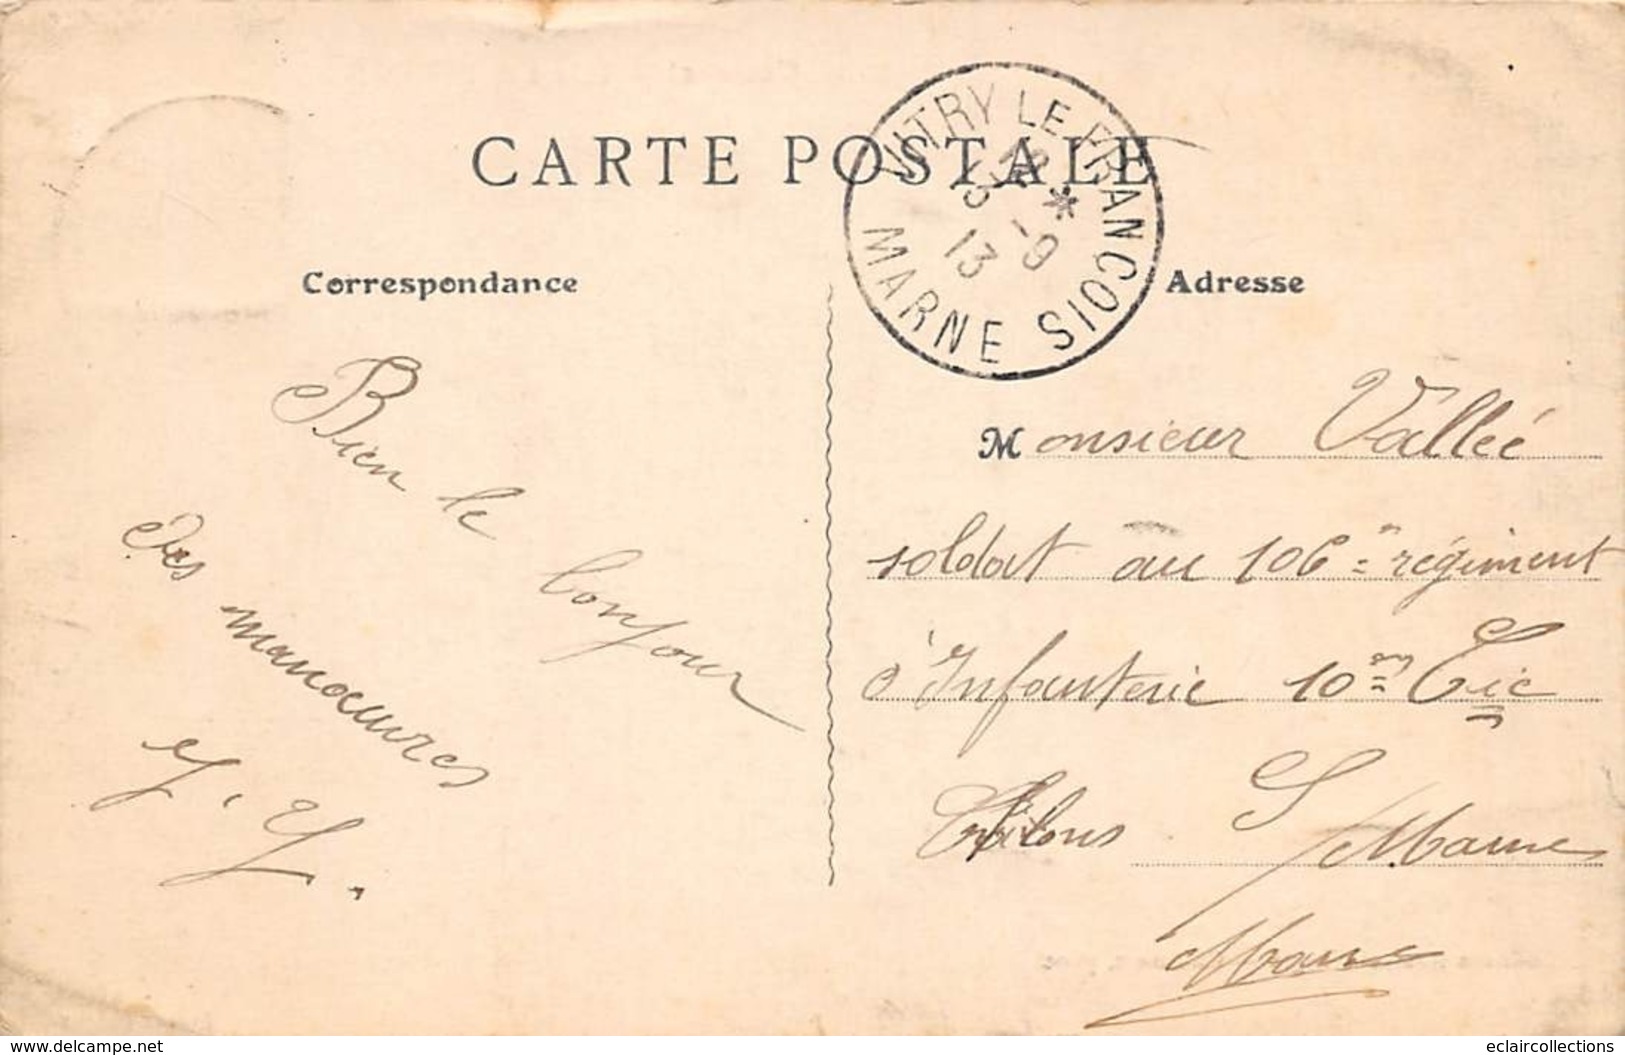 CARTE POSTALE
VITRY LE FRANÇOIS
MARNE
13 -9
13
Correspondance
Adresse
Bien le bonjour
des manoeuvres
Monsieur Valleé
soldat au 106e régiment
d'Infanterie 10me Cie
Châlons S/Marne
Marne
www.delcampe.net
eclaircollections